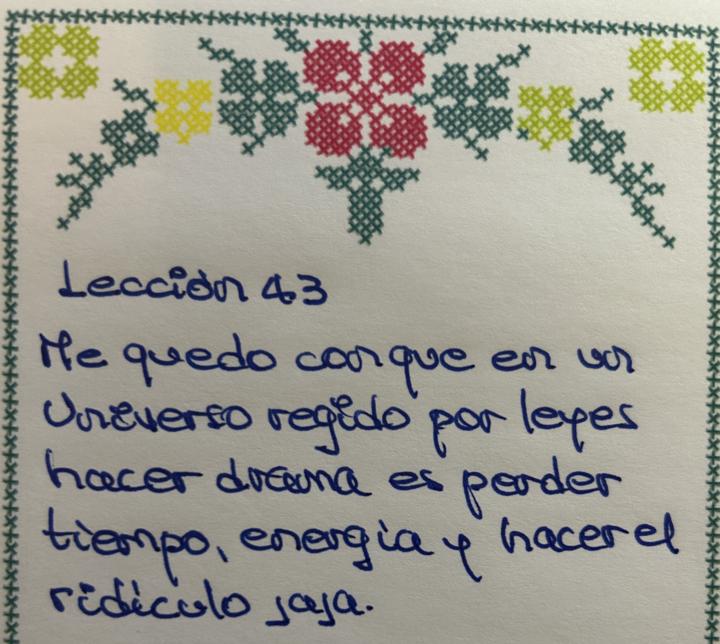 Lección 43
Me quedo con que en un
Universo regido por leyes
hacer drama es perder
tiempo, energía y hacer el
ridículo jaja.